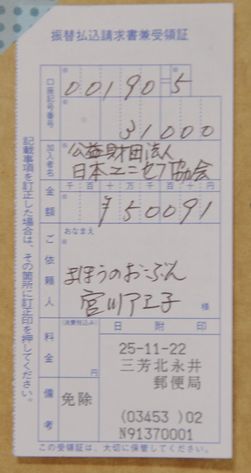 振替払込請求書兼受領証
口座記号番号
00190=5
31000
加入者名
公益財団法人
日本ユニセフ協会
金額
千 百 十 万 千 百 十 円
¥50091
ご依頼人
おなまえ
まほうのおーぶん
宮川アエ子
様
料金
(消費税込み)
円
備考
免除
日附印
25-11-22
三芳北永井
郵便局
(03453 )02
N91370001
記載事項を訂正した場合は、その箇所に訂正印を押してください。
この受領証は、大切に保管してください。